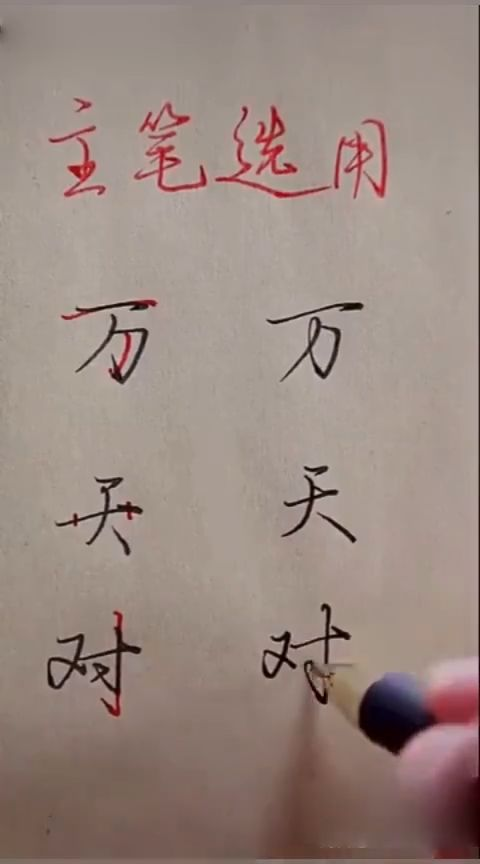 主笔选用
万 万
天 天
对 对